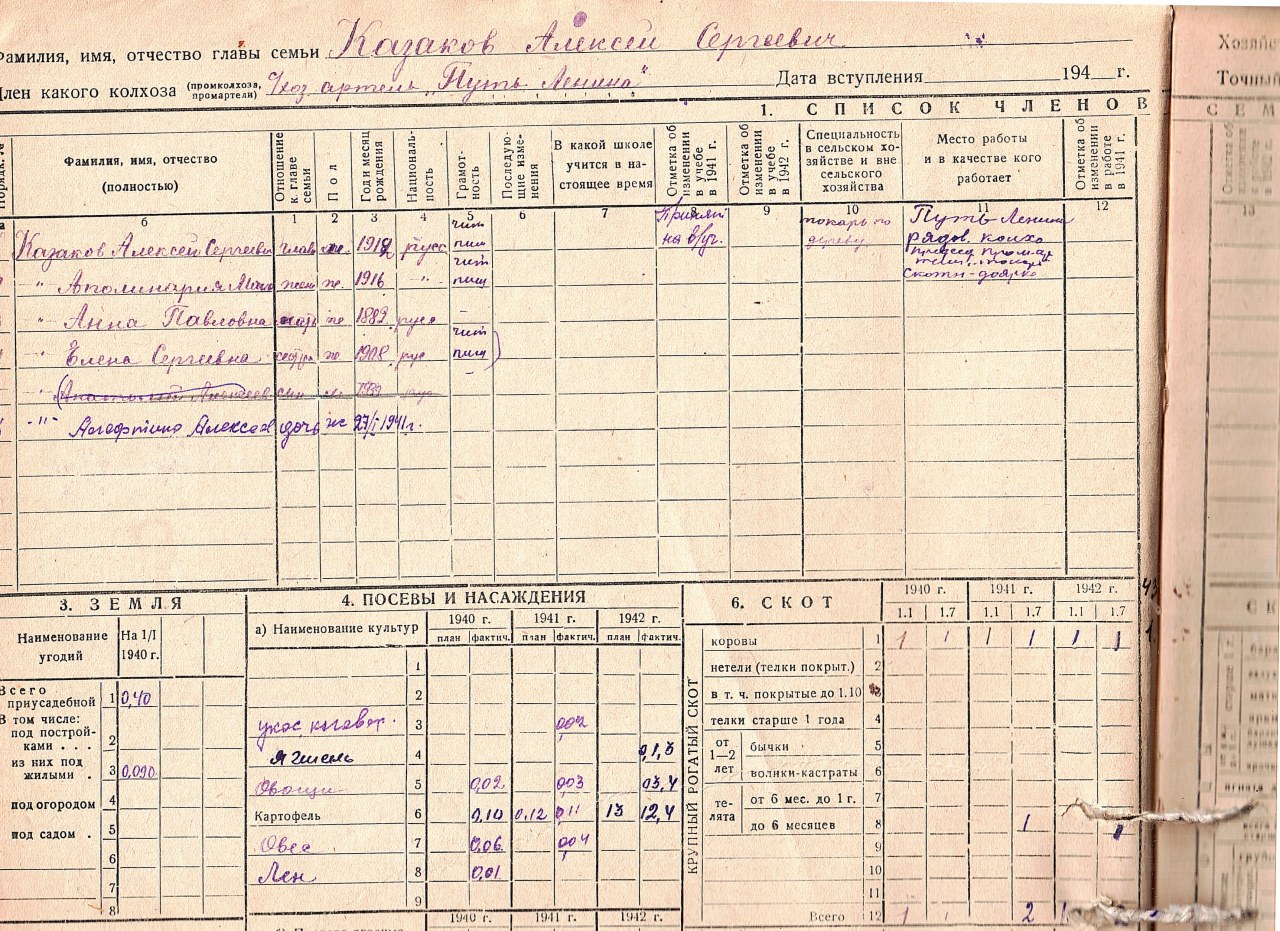 Фамилия, имя, отчество главы семьи Казаков Алексей Сергеевич
Член какого колхоза (промколхоза, промартели) с/хоз артель „Путь Ленина" Дата вступления 194 г.
1. СПИСОК ЧЛЕНОВ
Фамилия, имя, отчество (полностью) Отношение к главе семьи Пол Год и месяц рождения Националь-ность Грамот-ность Последую-щие изме-нения В какой школе учится в на-стоящее время Отметка об изменении в учебе в 1941 г. Отметка об изменении в учебе в 1942 г. Специальность в сельском хо-зяйстве и вне сельского хозяйства Место работы и в качестве кого работает Отметка об изменении в работе в 1941 г.
б 1 2 3 4 5 6 7 8 9 10 11 12 13
Казаков Алексей Сергеевич глав 1912 русс чит пиш Принят на в/уч. токарь по дереву Путь Ленина рядов. колхо
" Аполинария жена ж. 1916 " чит пиш Скотн-доярка
" Анна Павловна мать ж 1882 русс –
" Елена Сергеевна сестра ж 1908 рус чит пиш
" сын
-"- Алексеев дочь ж 27/I 1941 г.
3. ЗЕМЛЯ
Наименование угодий На 1/I 1940 г.
Всего приусадебной 1 0,40
В том числе: под построй-ками . . . 2
из них под жилыми . 3 0,090
под огородом 4
под садом . 5
6
7
8
4. ПОСЕВЫ И НАСАЖДЕНИЯ
а) Наименование культур 1940 г. 1941 г. 1942 г.
план фактич. план фактич. план фактич.
1
2
укос 3 002
Ячмень 4 0,1,3
Овощи 5 0,02 003 03,4
Картофель 6 0,10 0,12 011 13 12,4
Овес 7 0,06 004
Лен 8 0,01
9
1940 г. 1941 г. 1942 г.
6. СКОТ
1940 г. 1941 г. 1942 г.
1.1 1.7 1.1 1.7 1.1 1.7
КРУПНЫЙ РОГАТЫЙ СКОТ
коровы 1 1 1 1 1 1 1
нетели (телки покрыт.) 2
в т. ч. покрытые до 1.10 3
телки старше 1 года 4
от 1—2 лет бычки 5
волики-кастраты 6
те-лята от 6 мес. до 1 г. 7
до 6 месяцев 8 1 1
9
10
11
Всего 12 1 1 2
Хозяйст
Точный
СЕМ